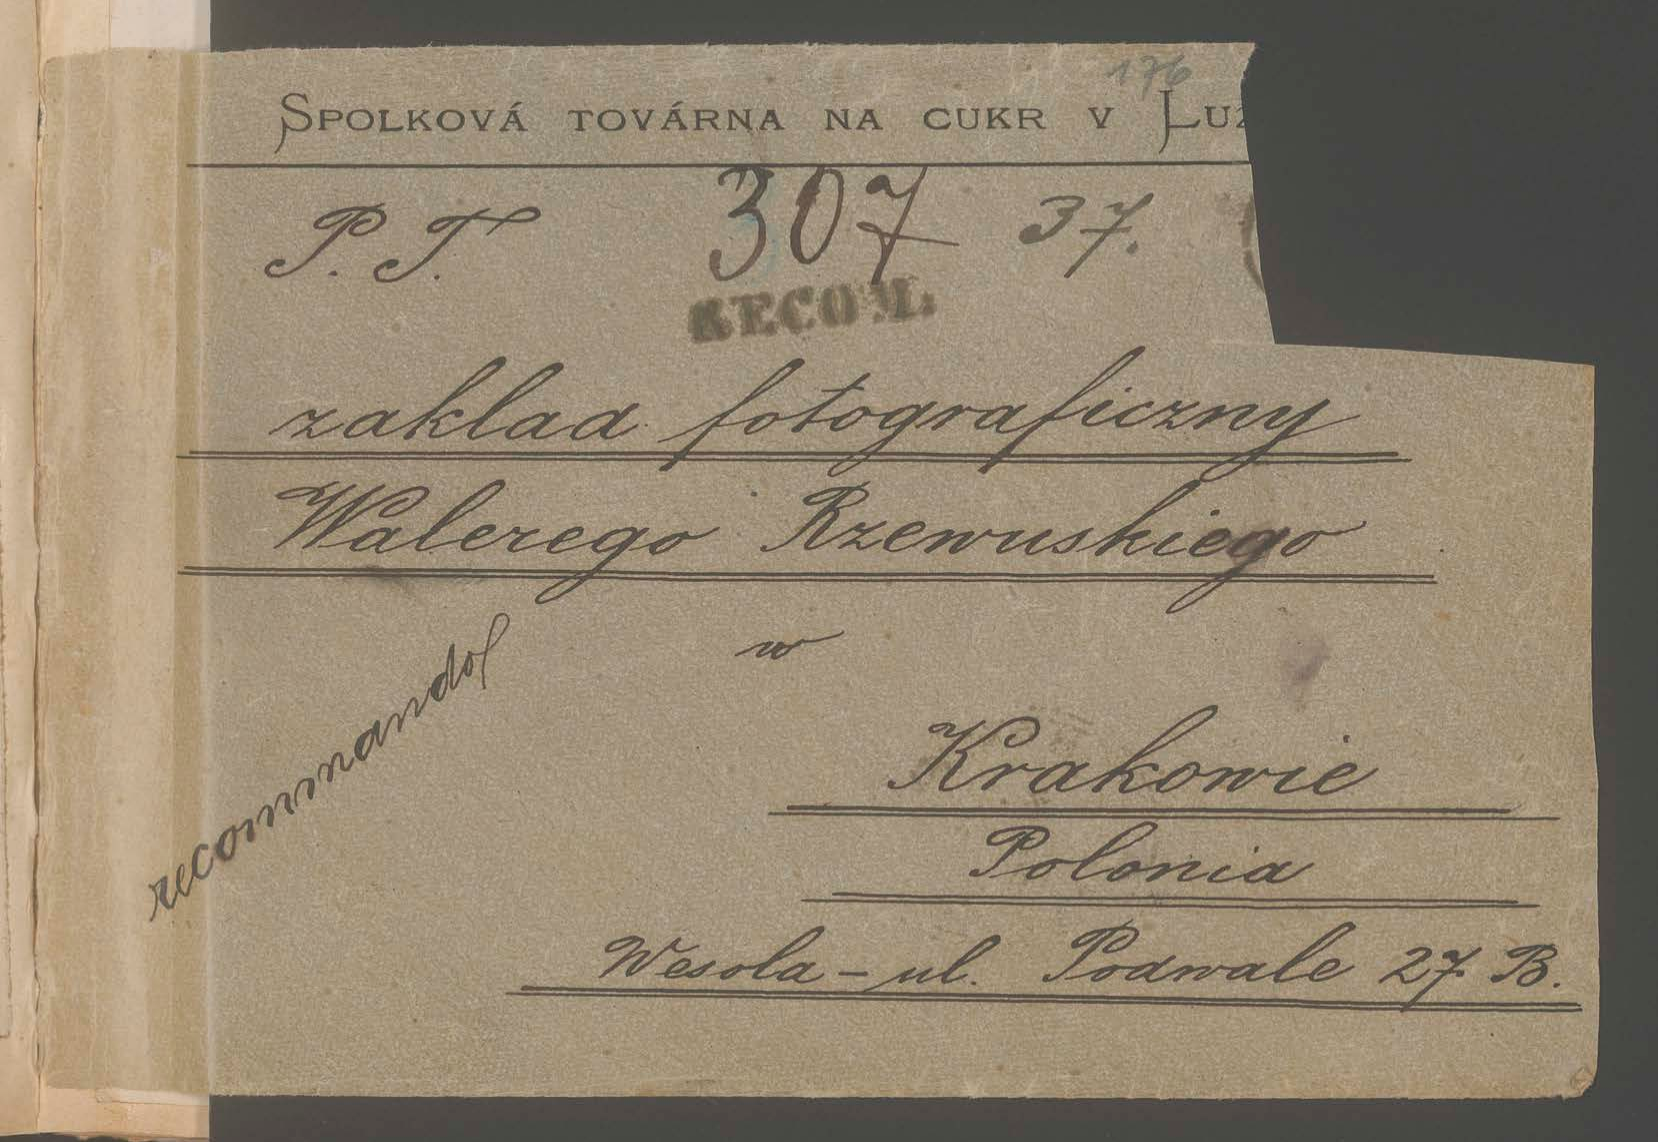 176
SPOLKOVÁ TOVÁRNA NA CUKR V LUŽ
P. T. 307 37.
RECOM.
zaklad fotograficzny
Walerego Rzewuskiego
w
recommando
Krakowie
Polonia
Wesola - ul. Podwale 27 B.